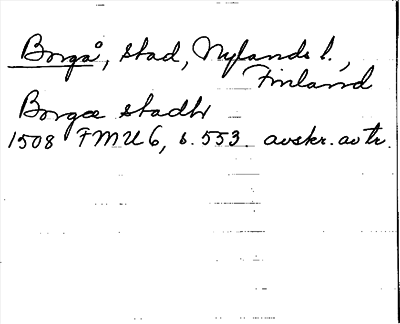 Borgå, stad, Nylands l.,
Finland
Borgæ stadh
1508 FMU 6, s. 553. avskr. av tr.